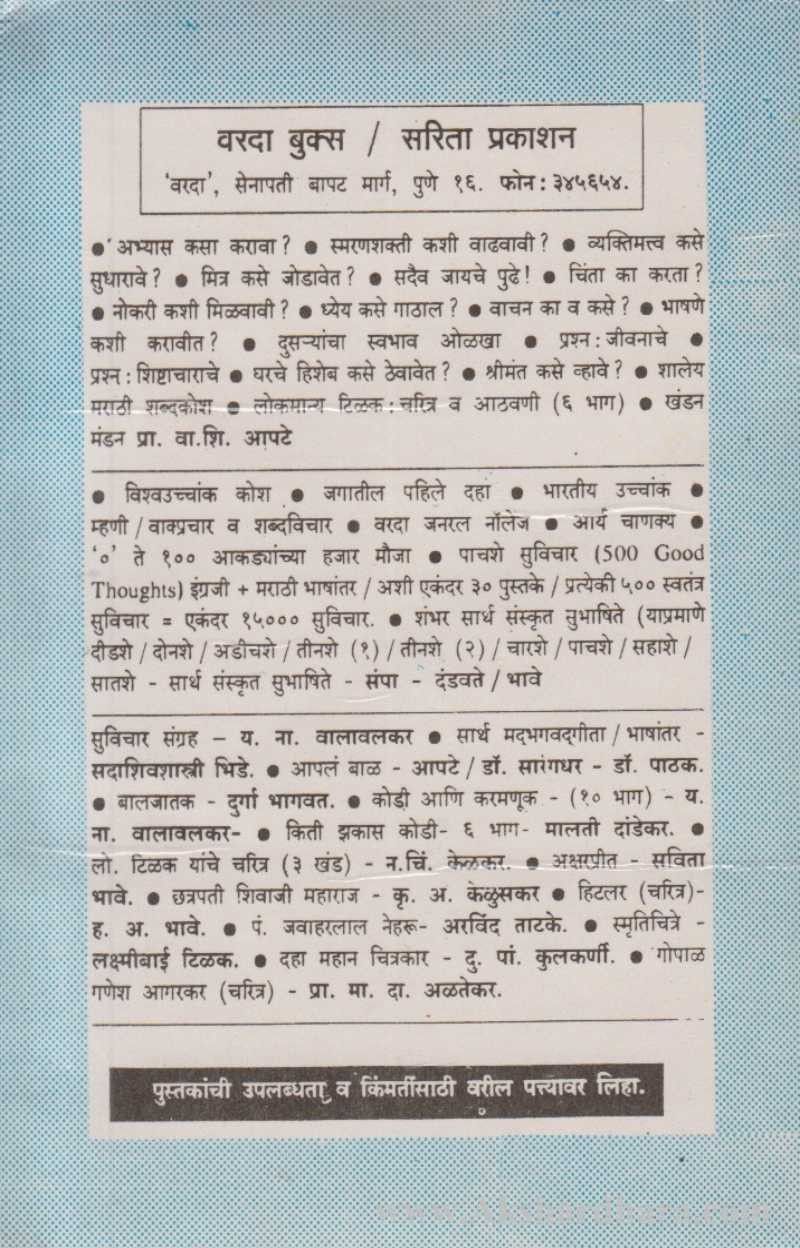 वरदा बुक्स / सरिता प्रकाशन
'वरदा', सेनापती बापट मार्ग, पुणे १६. फोन : ३४५६५४.
● अभ्यास कसा करावा ? ● स्मरणशक्ती कशी वाढवावी ? ● व्यक्तिमत्त्व कसे
सुधारावे ? ● मित्र कसे जोडावेत ? ● सदैव जायचे पुढे ! ● चिंता का करता ?
● नोकरी कशी मिळवावी ? ● ध्येय कसे गाठाल ? ● वाचन का व कसे ? ● भाषणे
कशी करावीत ? ● दुसऱ्यांचा स्वभाव ओळखा ● प्रश्न : जीवनाचे ●
प्रश्न : शिष्टाचाराचे ● घरचे हिशेब कसे ठेवावेत ? ● श्रीमंत कसे व्हावे ? ● शालेय
मराठी शब्दकोश ● लोकमान्य टिळक : चरित्र व आठवणी (६ भाग) ● खंडन
मंडन प्रा. वा.शि. आपटे
● विश्वउच्चांक कोश ● जगातील पहिले दहा ● भारतीय उच्चांक ●
म्हणी / वाक्प्रचार व शब्दविचार ● वरदा जनरल नॉलेज ● आर्य चाणक्य ●
'०' ते १०० आकड्यांच्या हजार मौजा ● पाचशे सुविचार (500 Good
Thoughts) इंग्रजी + मराठी भाषांतर / अशी एकंदर ३० पुस्तके / प्रत्येकी ५०० स्वतंत्र
सुविचार = एकंदर १५००० सुविचार. ● शंभर सार्थ संस्कृत सुभाषिते (याप्रमाणे
दीडशे / दोनशे / अडीचशे / तीनशे (१) / तीनशे (२) / चारशे / पाचशे / सहाशे /
सातशे - सार्थ संस्कृत सुभाषिते - संपा - दंडवते / भावे
सुविचार संग्रह – य. ना. वालावलकर ● सार्थ मदभगवद्गीता / भाषांतर -
सदाशिवशास्त्री भिडे. ● आपलं बाळ - आपटे / डॉ. सारंगधर - डॉ. पाठक.
● बालजातक - दुर्गा भागवत. ● कोडी आणि करमणूक - (१० भाग) - य.
ना. वालावलकर- ● किती झकास कोडी- ६ भाग- मालती दांडेकर. ●
लो. टिळक यांचे चरित्र (३ खंड) - न.चिं. केळकर. ● अक्षरप्रीत - सविता
भावे. ● छत्रपती शिवाजी महाराज - कृ. अ. केळुसकर ● हिटलर (चरित्र)-
ह. अ. भावे. ● पं. जवाहरलाल नेहरू- अरविंद ताटके. ● स्मृतिचित्रे -
लक्ष्मीबाई टिळक. ● दहा महान चित्रकार - दु. पां. कुलकर्णी. ● गोपाळ
गणेश आगरकर (चरित्र) - प्रा. मा. दा. अळतेकर.
पुस्तकांची उपलब्धता व किंमतींसाठी वरील पत्त्यावर लिहा.